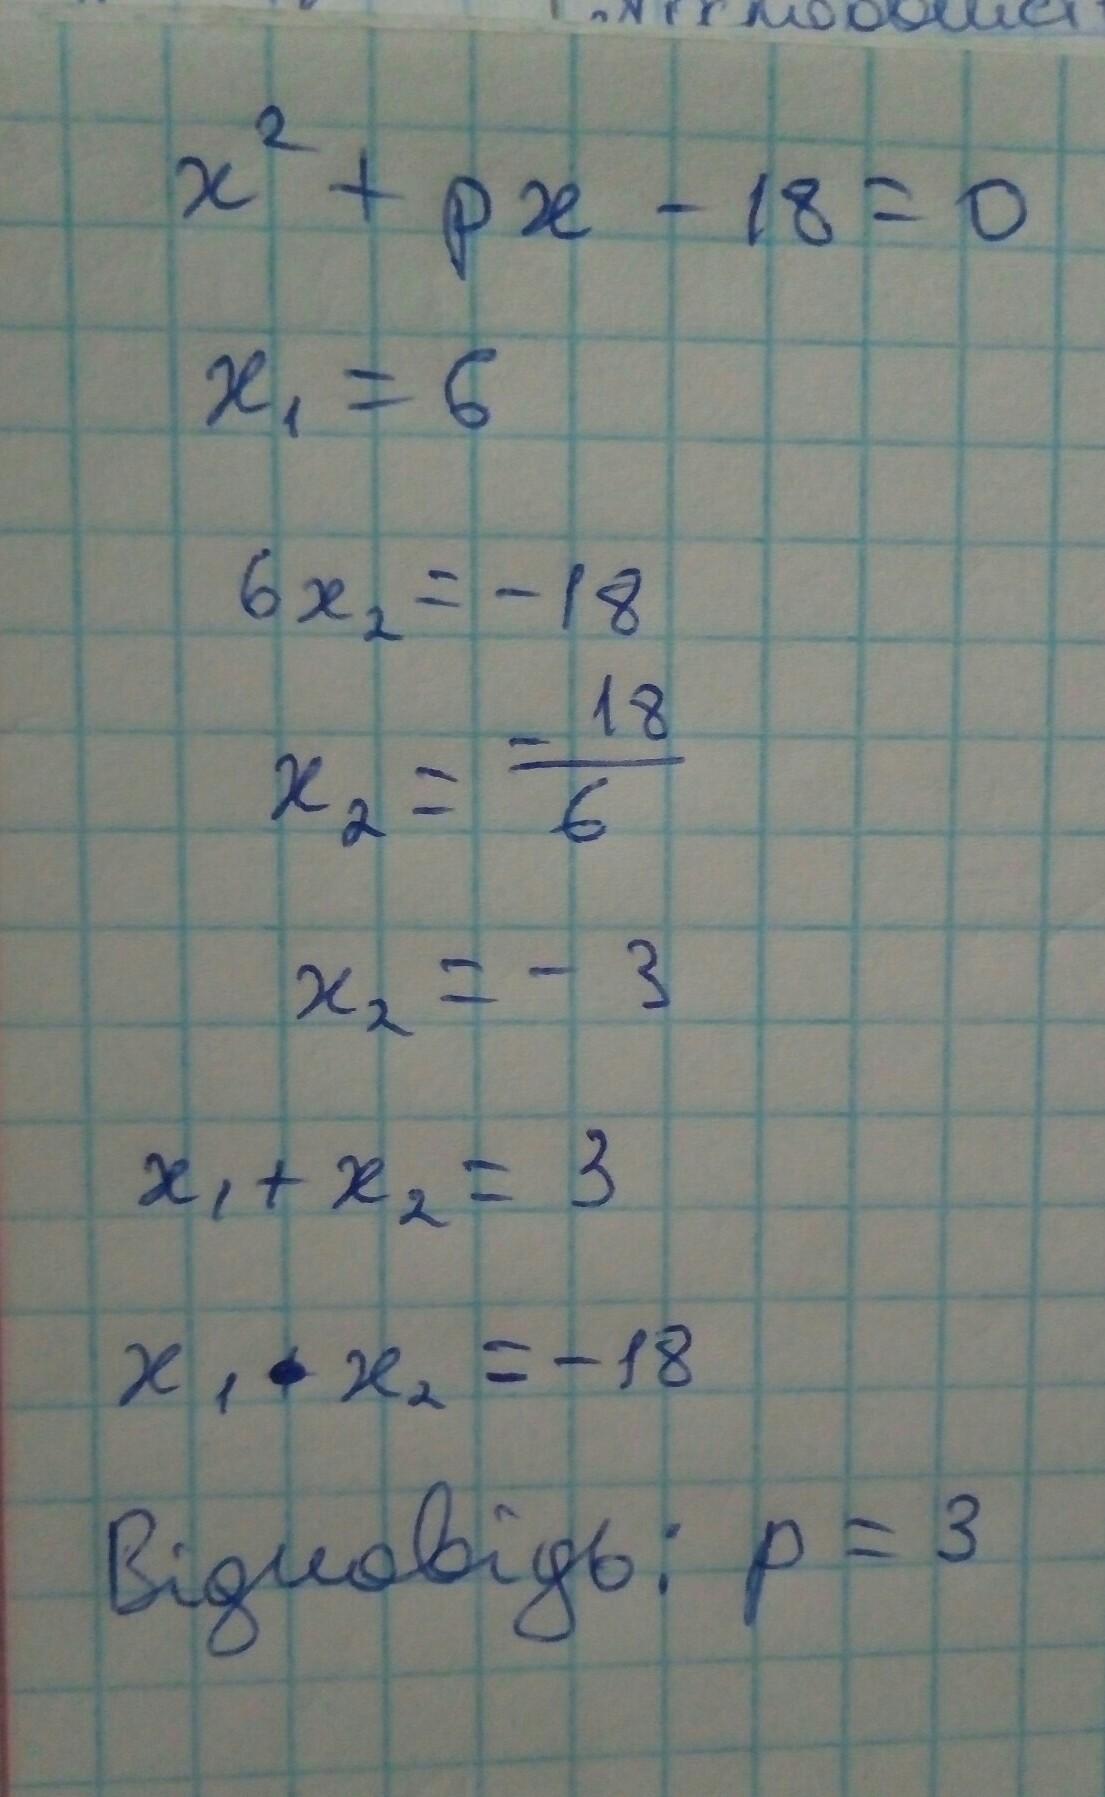 x² + px - 18 = 0
x₁ = 6
6x₂ = -18
x₂ = -18/6
x₂ = - 3
x₁ + x₂ = 3
x₁ • x₂ = -18
Відповідь: p = 3